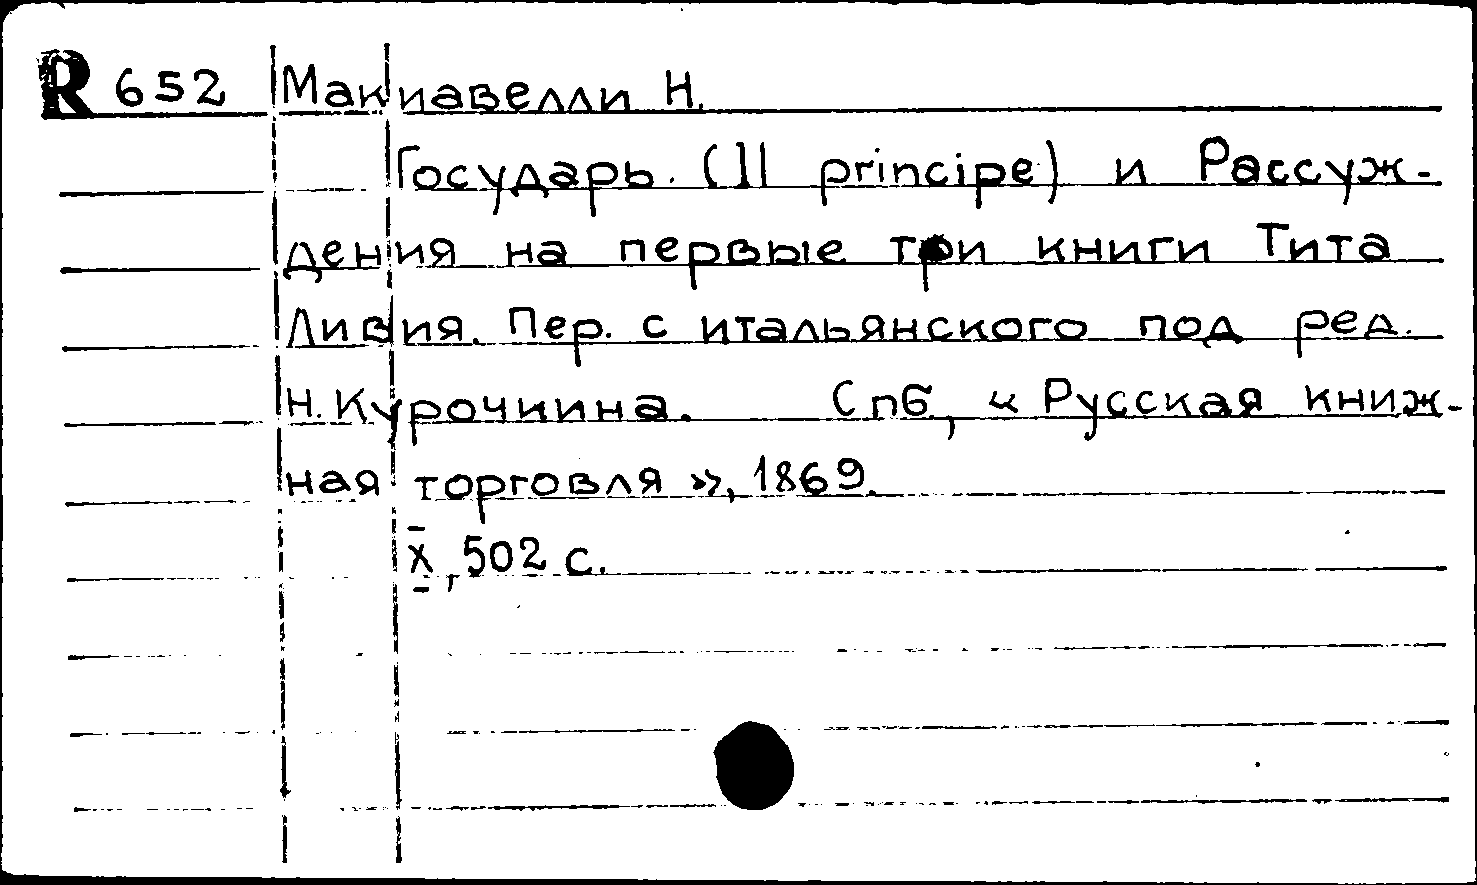 R 652 Макиавелли Н.
Государь. (Il principe) и Рассуж-
дения на первые три книги Тита
Ливия. Пер. с итальянского под ред.
Н. Курочиина. Спб, «Русская книж-
ная торговля», 1869.
X, 502 с.